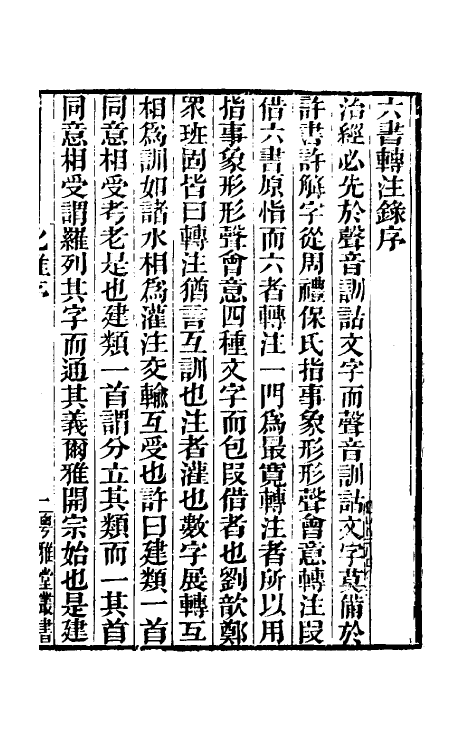 六書轉注錄序
治經必先於聲音訓詁文字而聲音訓詁文字莫備於
許書許解字從周禮保氏指事象形形聲會意轉注叚
借六書原恉而六者轉注一門為最寛轉注者所以用
指事象形形聲會意四種文字而包叚借者也劉歆鄭
眾班固皆曰轉注猶言互訓也注者灌也數字展轉互
相為訓如諸水相為灌注交輸互受也許曰建類一首
同意相受考老是也建類一首謂分立其類而一其首
同意相受謂羅列其字而通其義爾雅開宗始也是建
序
一
粵雅堂叢書